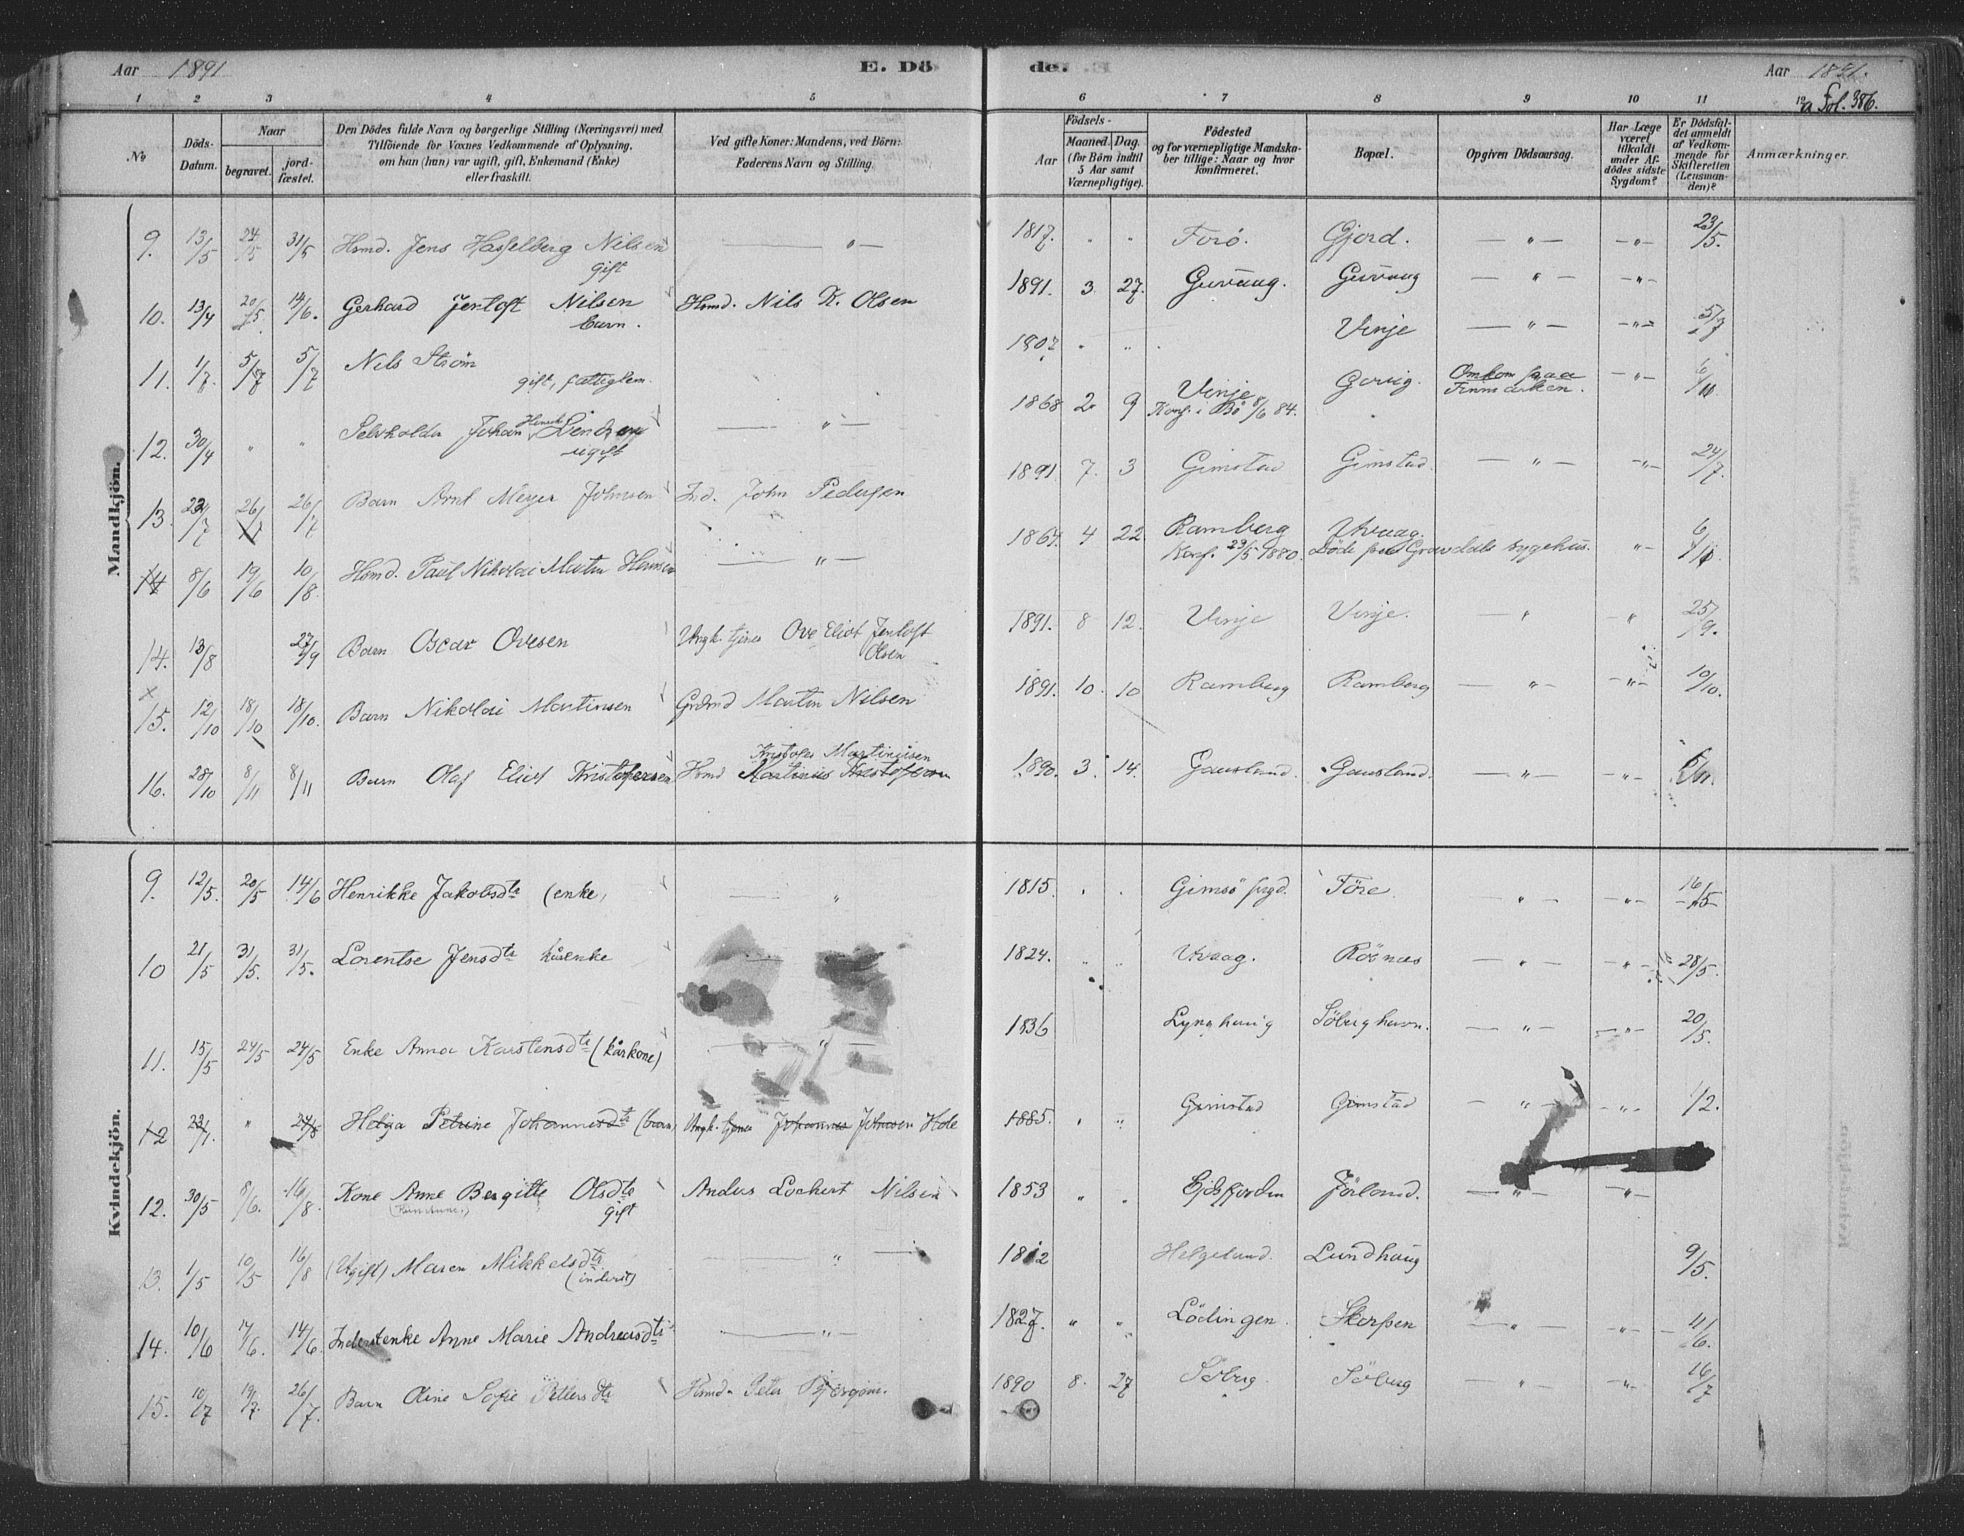 Aar 1891
E. Dö
de.
Aar 1891.
Fol. 386.
1 2 3 4 5 6 7 8 9 10 11 12
No
Döds-Datum.
Naar
begravet.
jord-fæstet.
Den Dödes fulde Navn og borgerlige Stilling (Næringsvei) med
Tilföiende for Voxnes Vedkommende af Oplysning,
om han (hun) var ugift, gift, Enkemand (Enke)
eller fraskilt.
Ved gifte Koner: Mandens, ved Börn:
Faderens Navn og Stilling.
Födsels-
Aar
Maaned. Dag.
(for Börn indtil
5 Aar samt
Værnepligtige).
Födested
og for værnepligtige Mandska-
ber tillige: Naar og hvor
konfirmeret.
Bopæl.
Opgiven Dödsaarsag.
Har Læge
været
tilkaldt
under Af-
dödes sidste
Sygdom?
Er Dödsfal-
det anmeldt
af Vedkom-
mende for
Skifteretten
(Lensman-
den)?
Anmærkninger.
Mandkjön.
9. 13/5 24/5 31/5 Hsmd. Jens Hasselberg Nilsen gift — " — 1817. " " Forö. Gjord. — " — — " — 23/5.
10. 13/4 20/5. 14/6. Gerhard Jentoft Nilsen barn. Hsmd. Nils K. Olsen 1891. 3. 27. Guvaag. Guvaag — " — — " —
11. 1/7. 5/7 5/7 Nils Strøm gift, fattiglem. 1807 " " Vinje — " — — " — 5/7
12. 30/4 " " Selvholder Johan Henrik ugift — " — 1868 2. 9 Vinje Konf. i Bö 8/6 84. Omkom paa Finmarken. — " —
13. 23/7 26/7 26/7 Barn Arnt Meyer Johnsen Ind. John Pedersen 1891 7. 3 Gimstad Gimstad. — " — — " — 24/7.
14 8/6 19/6 10/8. Hsmd. Paul Nikolai Martin Hansen — " — 1864. 4 22 Ramberg Konf. 23/5 1880. Utvaag. Döde paa Gravdals sygehus. "
14. 13/8 27/9 Barn Oscar Ovesen Ungk. tjener Ove Eliot Jentoft Olsen 1891. 8 12. Vinje Vinje. — " " 25/9.
15. 12/10 18/10 18/10. Barn Nikolai Martinsen Martin Nilsen 1891. 10. 10 Ramberg Ramberg — " — — " — 10/10.
16. 28/10 8/11 8/11 Barn Olaf Eliot Kristofersen Hsmd Kristofer Martinusen Martinius Kristofersen 1890. 3. 14. Gausland. Gausland. — " — — " —
Kvindekjön.
9. 12/5. 20/5 14/6 Henrikke Jakobsdtr (enke) " 1815. " " Gimsö prgd. Töre. — " — — " — 16/5
10 21/5 31/5. 31/5. Lorentse Jensdtr kårenke 1824. " " Utvaag. Rösnæs — " — — " — 28/5.
11. 15/5 24/5 24/5 Enke Anna Karstensdtr (kårkone) — " — 1836 Lynghaug Söberghavn. — " — — " — 20/5.
12 " Helga Petrine Johannesdtr (barn) Ungk. tjener Johannes Johnsen Hole 1885. " " Gimstad Gimstad — " — — " — 1/2.
12. 30/5 8/6. 16/8. Kone Anne Bergitte Olsdtr gift Anders Lockert Nilsen 1853 " " Eidsfjorden Jörland. — " — — " —
13. 1/5 10/5 16/8 (Ugift) Maren Mikkelsdtr (inderst) — " — 1812 Helgeland. Lundhaug 9/5.
14. 10/6 17/6. 14/6. Inderstenke Anne Marie Andreasdtr — " — 1827. " " Lödingen. Skorpen — " — — " —
15. 10/7 19/7. 26/7. Barn Oline Sofie Pettersdtr Hsmd. Peter 1890 8. 27 Söberg Söberg — " — — " — 16/7